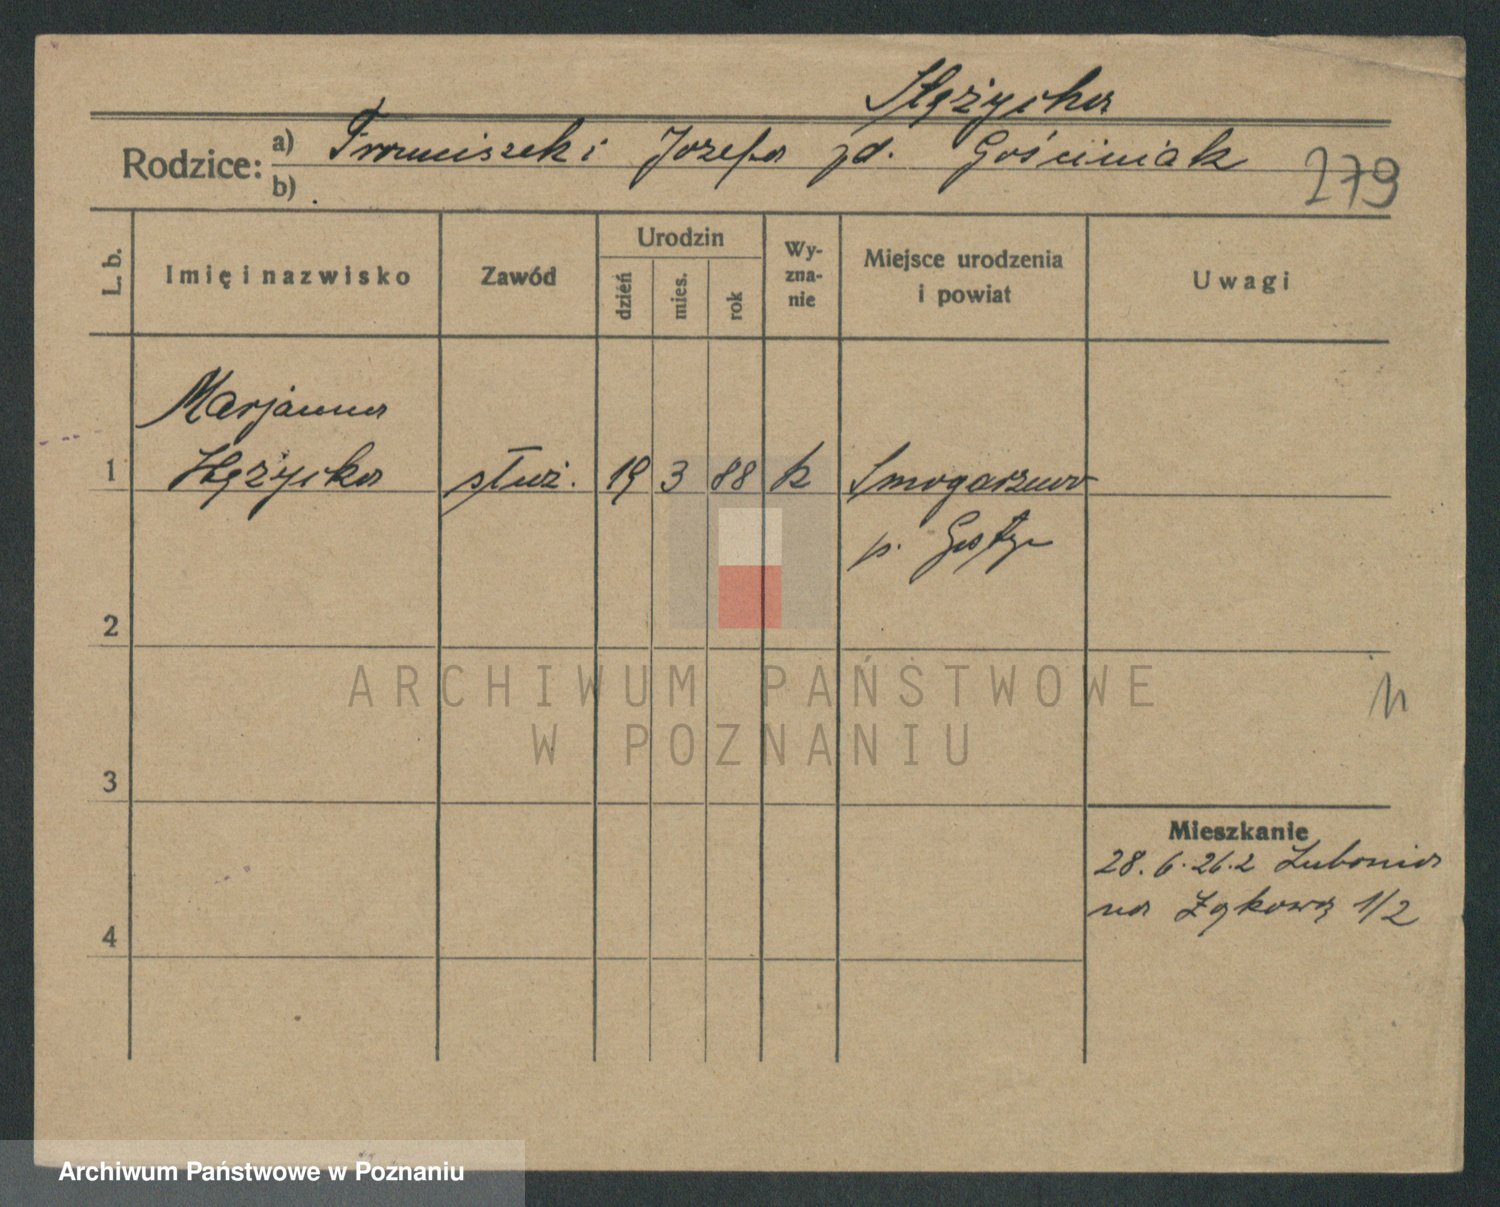 Stężycka
Rodzice: a) Franciszek i Józefa zd. Gościniak
b)
279
L. b.
Imię i nazwisko
Zawód
Urodzin
dzień
mies.
rok
Wy-
zna-
nie
Miejsce urodzenia
i powiat
Uwagi
Marjanna
1 Stężycka służ. 19 3 88 k Smogorzewo
p. Gostyń
2
3
4
Mieszkanie
28.6.26. z Lubonia
na Łąkową 1/2
ARCHIWUM PAŃSTWOWE
W POZNANIU
Archiwum Państwowe w Poznaniu